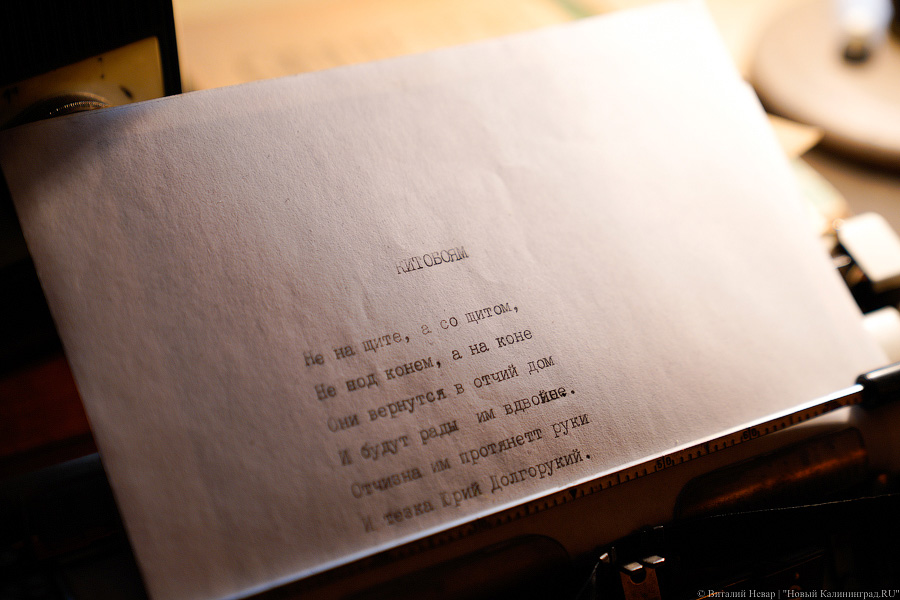 КИТОБОЯМ
Не на щите, а со щитом,
Не под конем, а на коне
Они вернутся в отчий дом
И будут рады им вдвойне.
Отчизна им протянетт руки
И тезка Юрий Долгорукий.
50
© Виталий Невар | "Новый Калининград.RU"